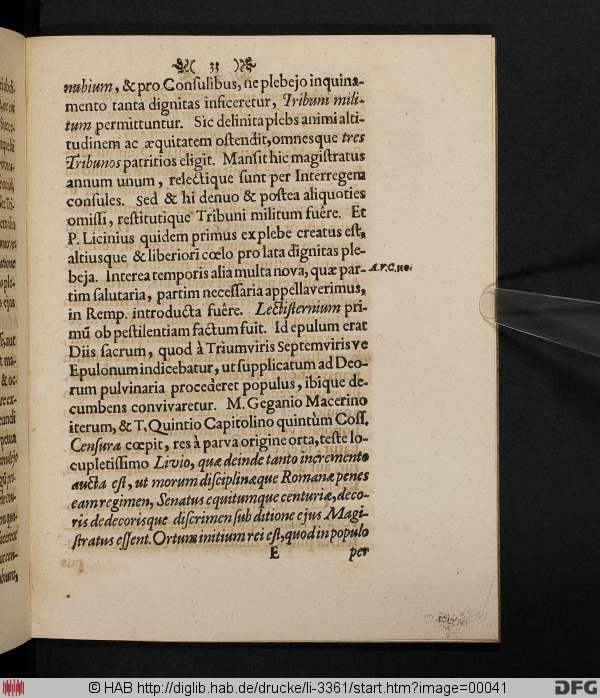 ( 33 )
nubium, & pro Consulibus, ne plebejo inquina-
mento tanta dignitas inficeretur, Tribuni mili-
tum permittuntur. Sic delinita plebs animi alti-
tudinem ac æquitatem ostendit, omnesque tres
Tribunos patritios eligit. Mansit hic magistratus
annum unum, relectique sunt per Interregem
consules. Sed & hi denuo & postea aliquoties
omissi, restitutique Tribuni militum fuêre. Et
P. Licinius quidem primus ex plebe creatus est,
altiusque & liberiori cœlo pro lata dignitas ple-
beja. Interea temporis alia multa nova, quæ par-
A.V.C.
tim salutaria, partim necessaria appellaverimus,
in Remp. introducta fuêre. Lectisternium pri-
mũ ob pestilentiam factum fuit. Id epulum erat
Diis sacrum, quod à Triumviris Septemviris ve
Epulonum indicebatur, ut supplicatum ad Deo-
rum pulvinaria procederet populus, ibique de-
cumbens convivaretur. M. Geganio Macerino
iterum, & T. Quintio Capitolino quintùm Coss.
Censura cœpit, res à parva origine orta, teste lo-
cupletissimo Livio, quæ deinde tanto incremento
aucta est, ut morum disciplinæque Romanæ penes
eam regimen, Senatus equitumque centuriæ, deco-
ris dedecorisque discrimen sub ditione ejus Magi-
stratus essent. Ortum initium rei est, quod in populo
E per
© HAB http://diglib.hab.de/drucke/li-3361/start.htm?image=00041
DFG